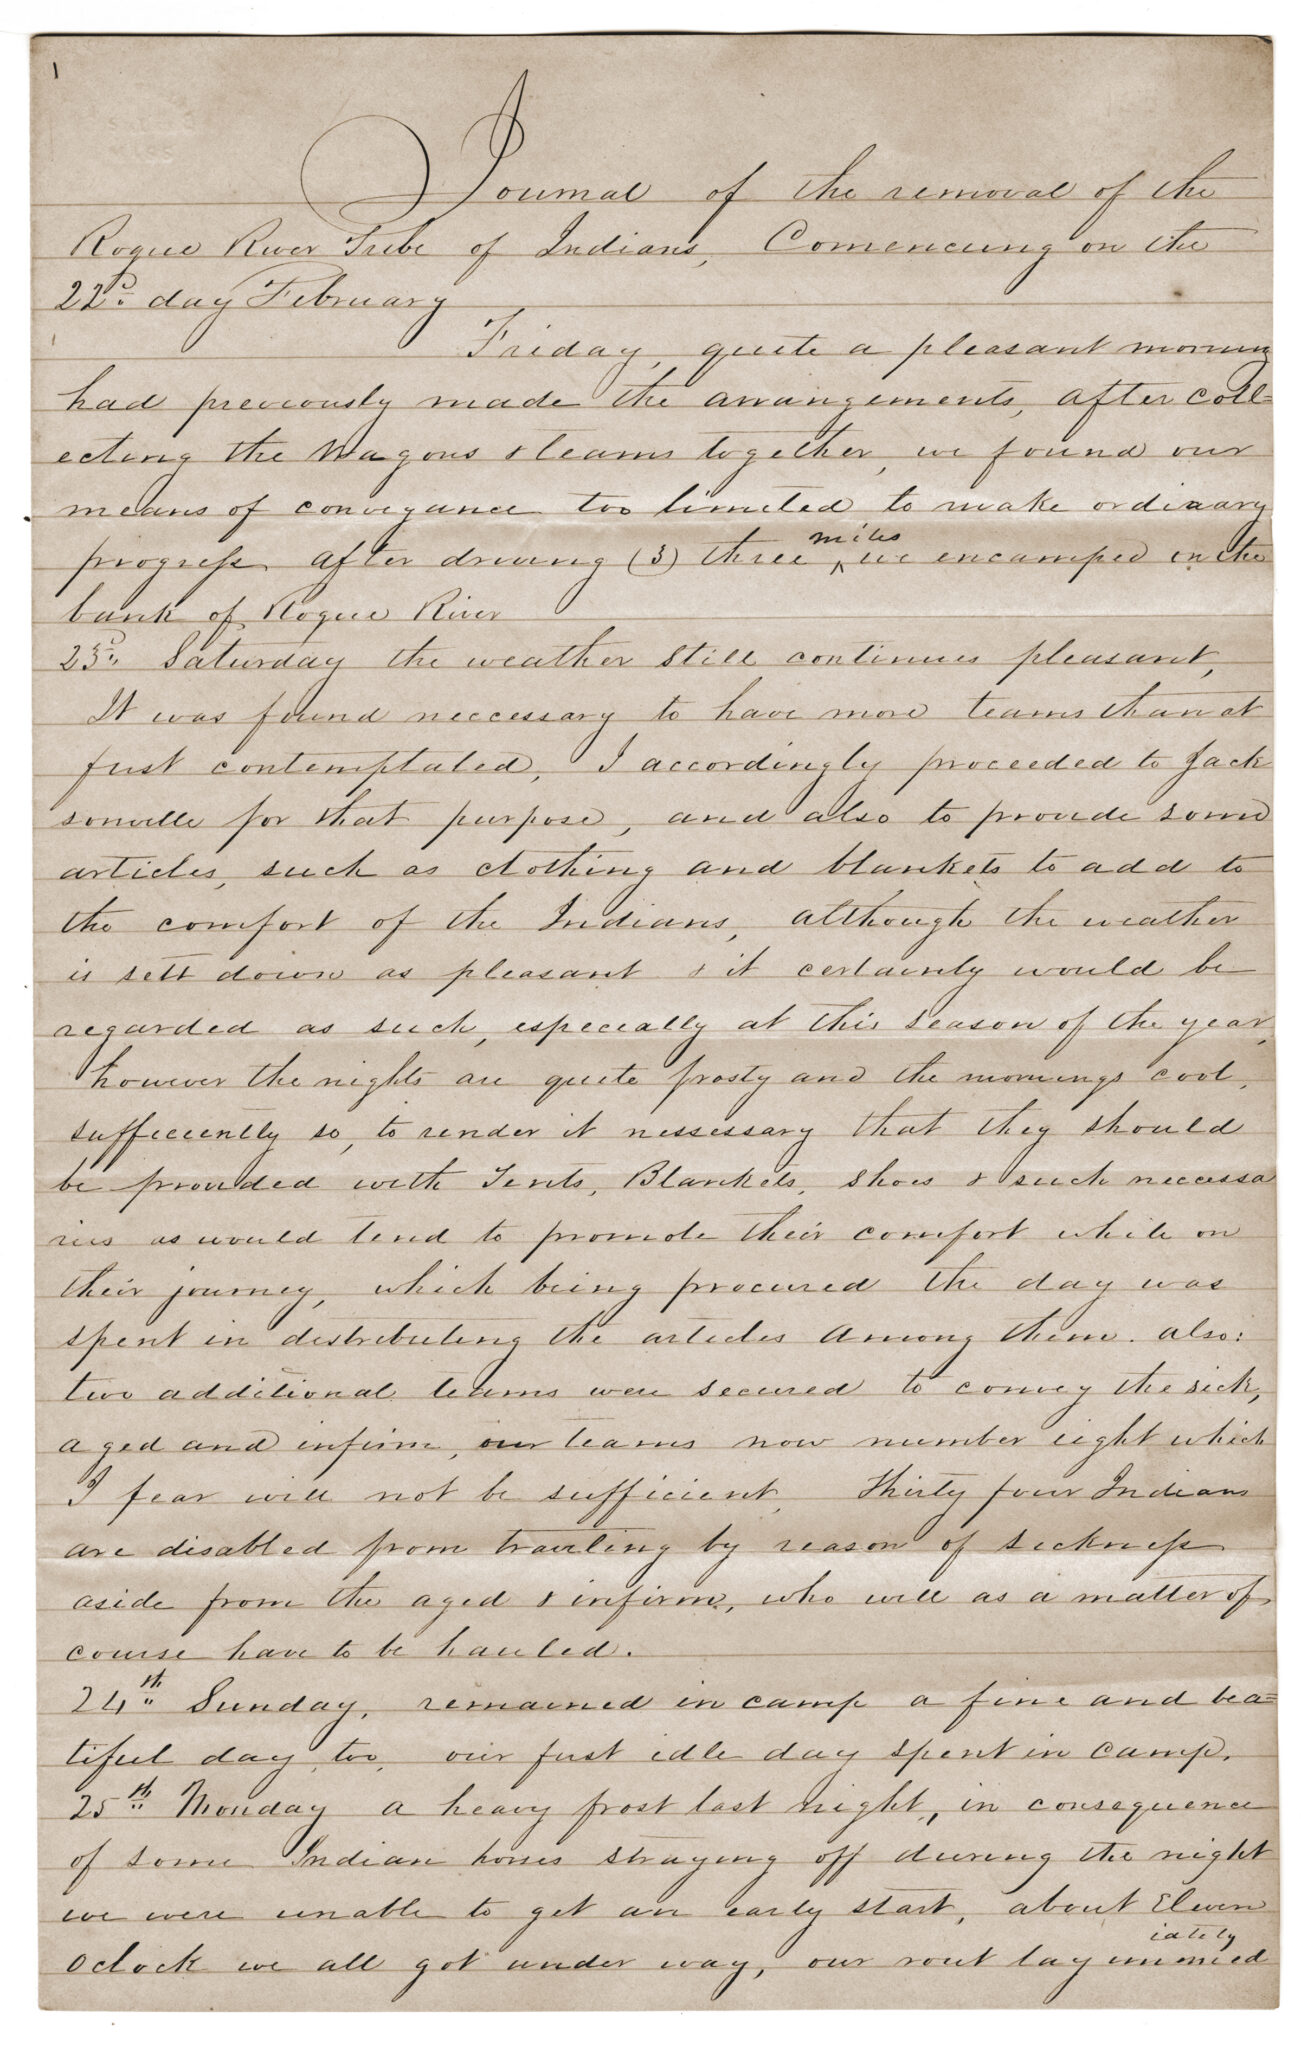 1
Journal of the removal of the
Rogue River Tribe of Indians, Comencing on the
22d. day February
Friday, quite a pleasant morning
had previously made the arrangements, after coll=
ecting the Wagons & teams together, we found our
means of conveyance too limited to make ordinary
progress after driving (3) three miles we encamped on the
bank of Rogue River
23d. Saturday the weather still continues pleasant,
It was found neccessary to have more teams than at
first contemptated, I accordingly proceeded to Jack
sonville for that purpose, and also to provide some
articles, such as clothing and blankets to add to
the comfort of the Indians, although the weather
is sett down as pleasant & it certainly would be
regarded as such, especially at this season of the year,
however the nights are quite frosty and the mornings cool,
sufficiently so, to render it nessessary that they should
be provided with Tents, Blankets, Shoes & such necessa
ries as would tend to promote their comfort while on
their journey, which being procured the day was
spent in distributing the articles among them. also:
two additional teams were secured to convey the sick,
aged and infirm, our teams now number eight which
I fear will not be sufficient, Thirty four Indians
are disabled from traviling by reason of sickness
aside from the aged & infirm, who will as a matter of
course have to be hauled.
24th Sunday, remained in camp a fine and bea=
tiful day, too, our first idle day spent in camp.
25th Monday a heavy frost last night, in consequence
of some Indian horses straying off during the night
we were unable to get an early start, about Eleven
Oclock we all got under way, our rout lay immediately